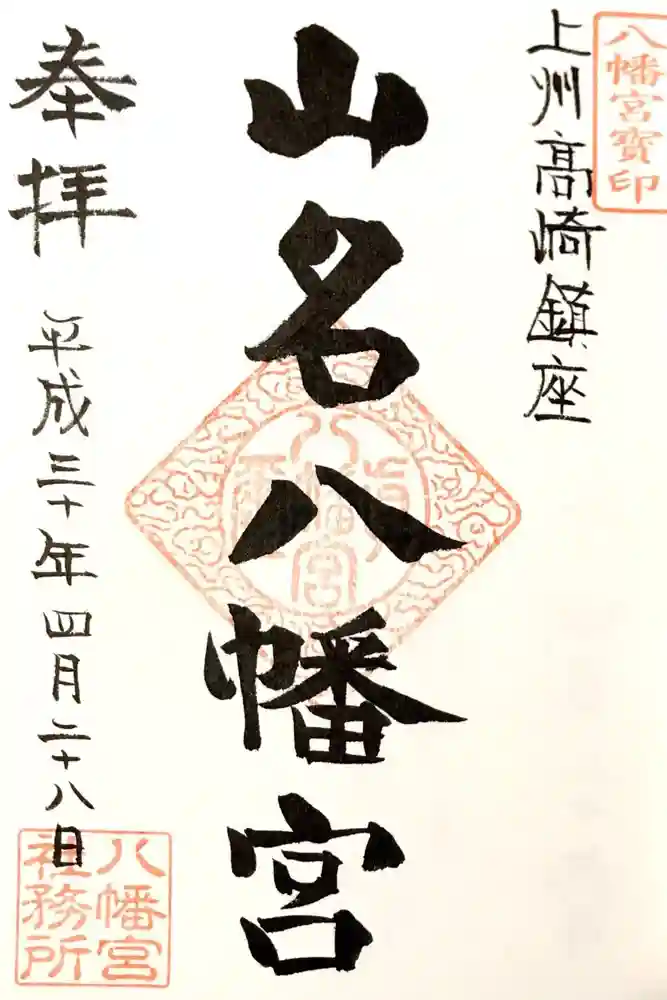 八幡宮寳印
上州高崎鎮座
山名八幡宮
奉拝
平成三十年四月二十八日
八幡宮
社務所